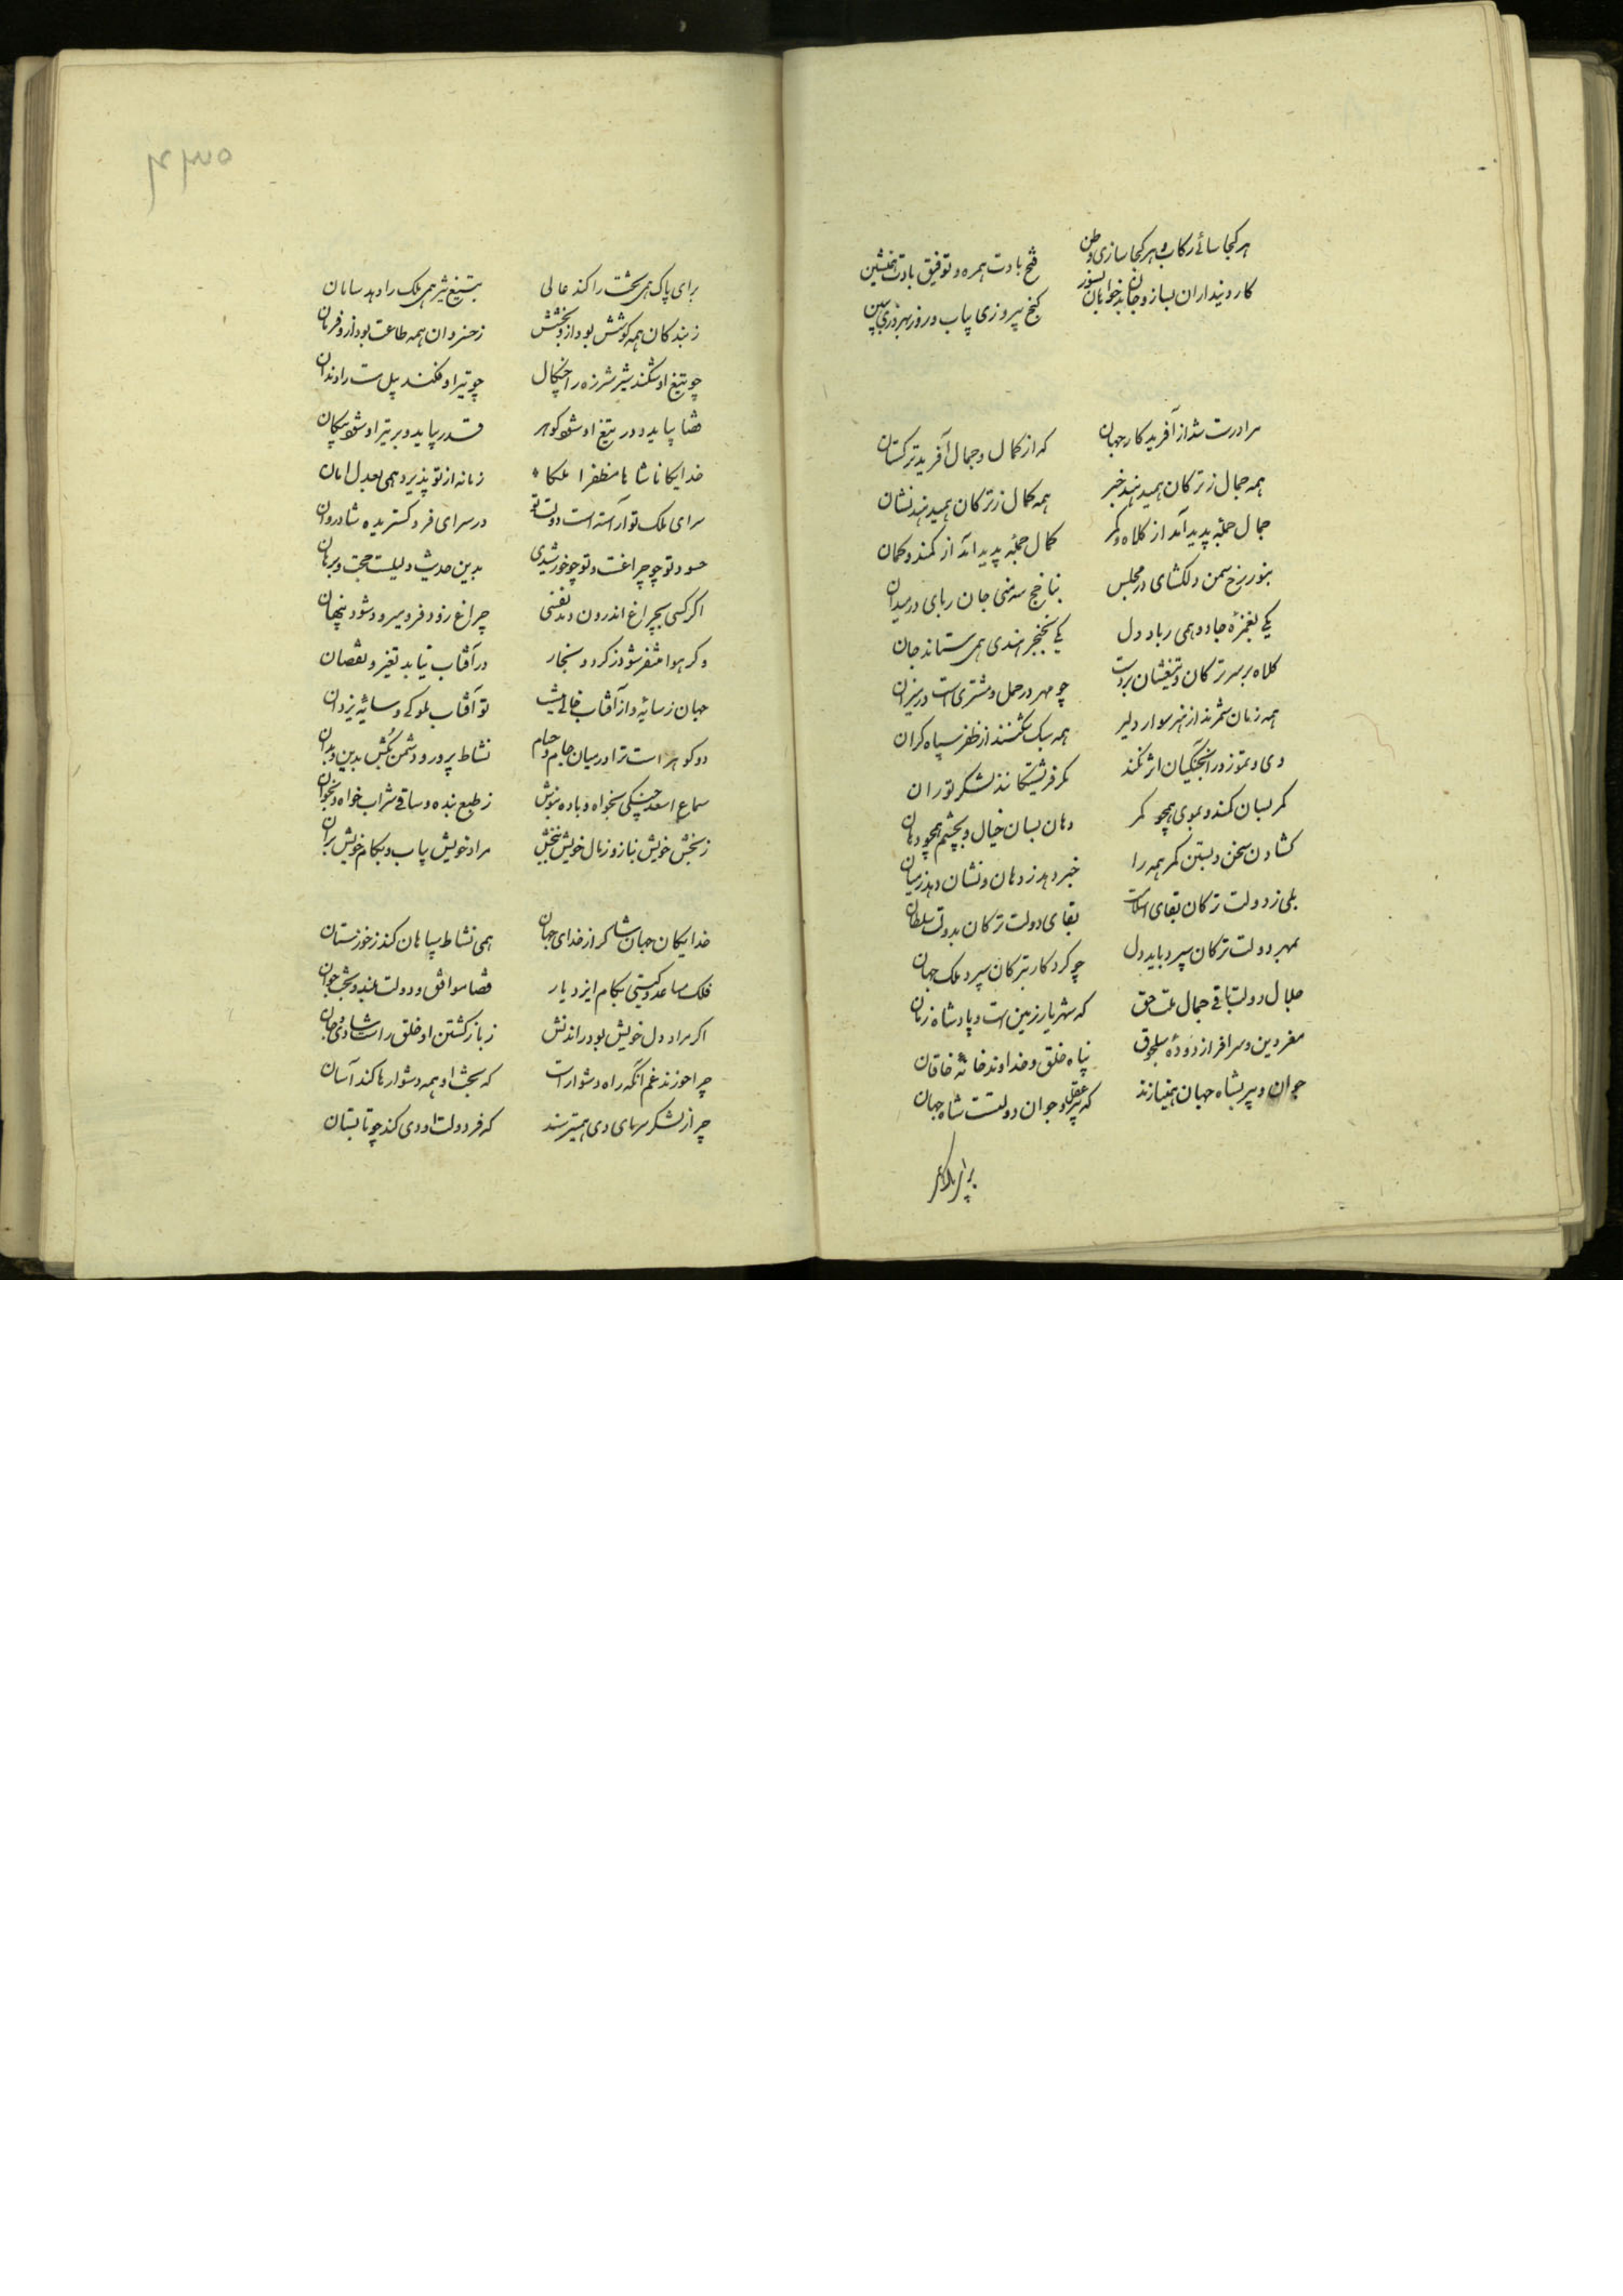 هر کجا سائے رکاب و هر کجا سازی وطن    فتح بادت همره و توفیق بادت همنشین
کار دینداران بساز و جان بدخواهان بسوز    گنج پیروزی بیاب و روز بهروزی ببین
مرا درست شد از آفریدکار جهان    که از کمال و جمال آفرید ترکستان
همه جمال ز ترکان همیدهند خبر    همه کمال ز ترکان همیدهند نشان
جمال جمله پدید آمد از کلاه و کمر    کمال جمله پدید آمد از کمند و کمان
دلکشای در مجلس    جان ربای در میدان
یکی بغمزهٔ جادو همی رباید دل    یکی بخنجر هندی همی ستاند جان
کلاه بر سر ترکان و تیغشان بر دست    چو مهر در حمل و مشتری است در میزان
همه زمان شمرند از هنر سوار دلیر    همه سبک شکنند از ظفر سپاه کران
دی و تموز در اثر نکند    مکر فریشتگانند لشکر توران
کمر بسان کمند و بموی همچو کمر    دهان بسان خیال و بچشم همچو دهان
کشادن سخن و بستن کمر همه را    خبر دهد ز دهان و نشان دهد ز میان
بلی ز دولت ترکان بقای اسلامست    بقای دولت ترکان بدولت سلطان
بمهر دولت ترکان سپرد باید دل    چو کردکار بترکان سپرد ملک جهان
جلال دولت باقی جمال ملت حق    که شهریار زمین است و پادشاه زمان
مغز دین و سرافراز دودهٔ سلجوق    پناه خلق و خداوند خانهٔ خاقان
جوان و پیر بشاه جهان همینازند    که پیر عقل و جوان دولتست شاه جهان
برای پاک
برای پاک همی بخت را کند عالی    بتیغ تیز همی ملک را دهد سامان
ز بندکان همه کوشش بود ازو بخشش    ز خسروان همه طاعت بود ازو فرمان
چو تیغ او شکند شیر شرزه را چنگال    چو تیر او فکند پیل مست را دندان
قضا بیاید و در تیغ او شود کوهر    قدر بیاید و بر تیر او شود پیکان
خدایکانا شاها مظفرا ملکا    زمانه از تو پذیرد همی بعدل امان
سرای ملک تو آراسته است دولت تو    در سرای فرو کستریده شادروان
حسود تو چو چراغست و تو چو خورشیدی    بدین حدیث دلیلست حجت و برهان
اگر کسی بچراغ اندرون دمد نفسی    چراغ زود فرو میرد و شود پنهان
وکر هوا متغیر شود ز کرد و بخار    در آفتاب نیاید تغیر و نقصان
جهان ز سایه و از آفتاب خالی نیست    تو آفتاب ملوکی و سایهٔ یزدان
دو کوهر است ترا در میان جام و حسام    نشاط پرور و دشمن بکش بدین و بدان
سماع اسعد چنگی بخواه و باده بنوش    ز طبع بنده و ساقی شراب خواه و بخوان
ز بخش خویش بناز و ز مال خویش ببخش    مراد خویش بیاب و بکام خویش بران
خدایکان جهان شاکر از خدای جهان    همی نشاط سپاهان کند ز خوزستان
فلک مساعد و کیتی بکام ایزد یار    قضا موافق و دولت بلند و بخت جوان
اگر مراد دل خویش بود راندنش    ز باز کشتن او خلق راست شادی جان
چرا خورند غم آنکه راه دشوار است    که بخت او همه دشوارها کند آسان
چرا ز لشکر سرمای دی همیترسند    که فر دولت او دی کند چو تابستان